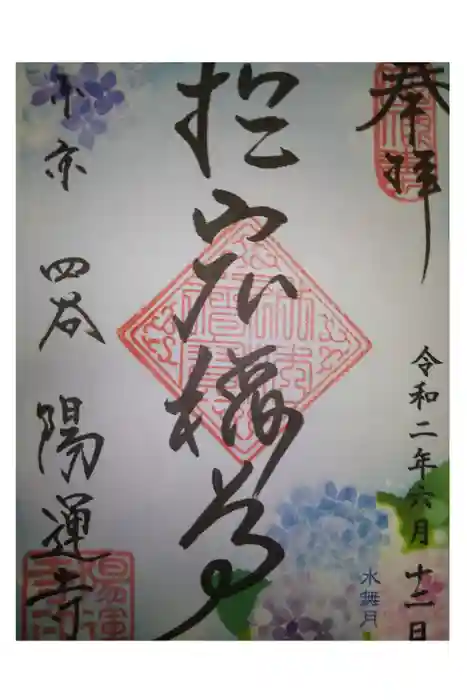 奉拝
令和二年六月十二日
水無月
於岩
東京 四谷 陽運寺